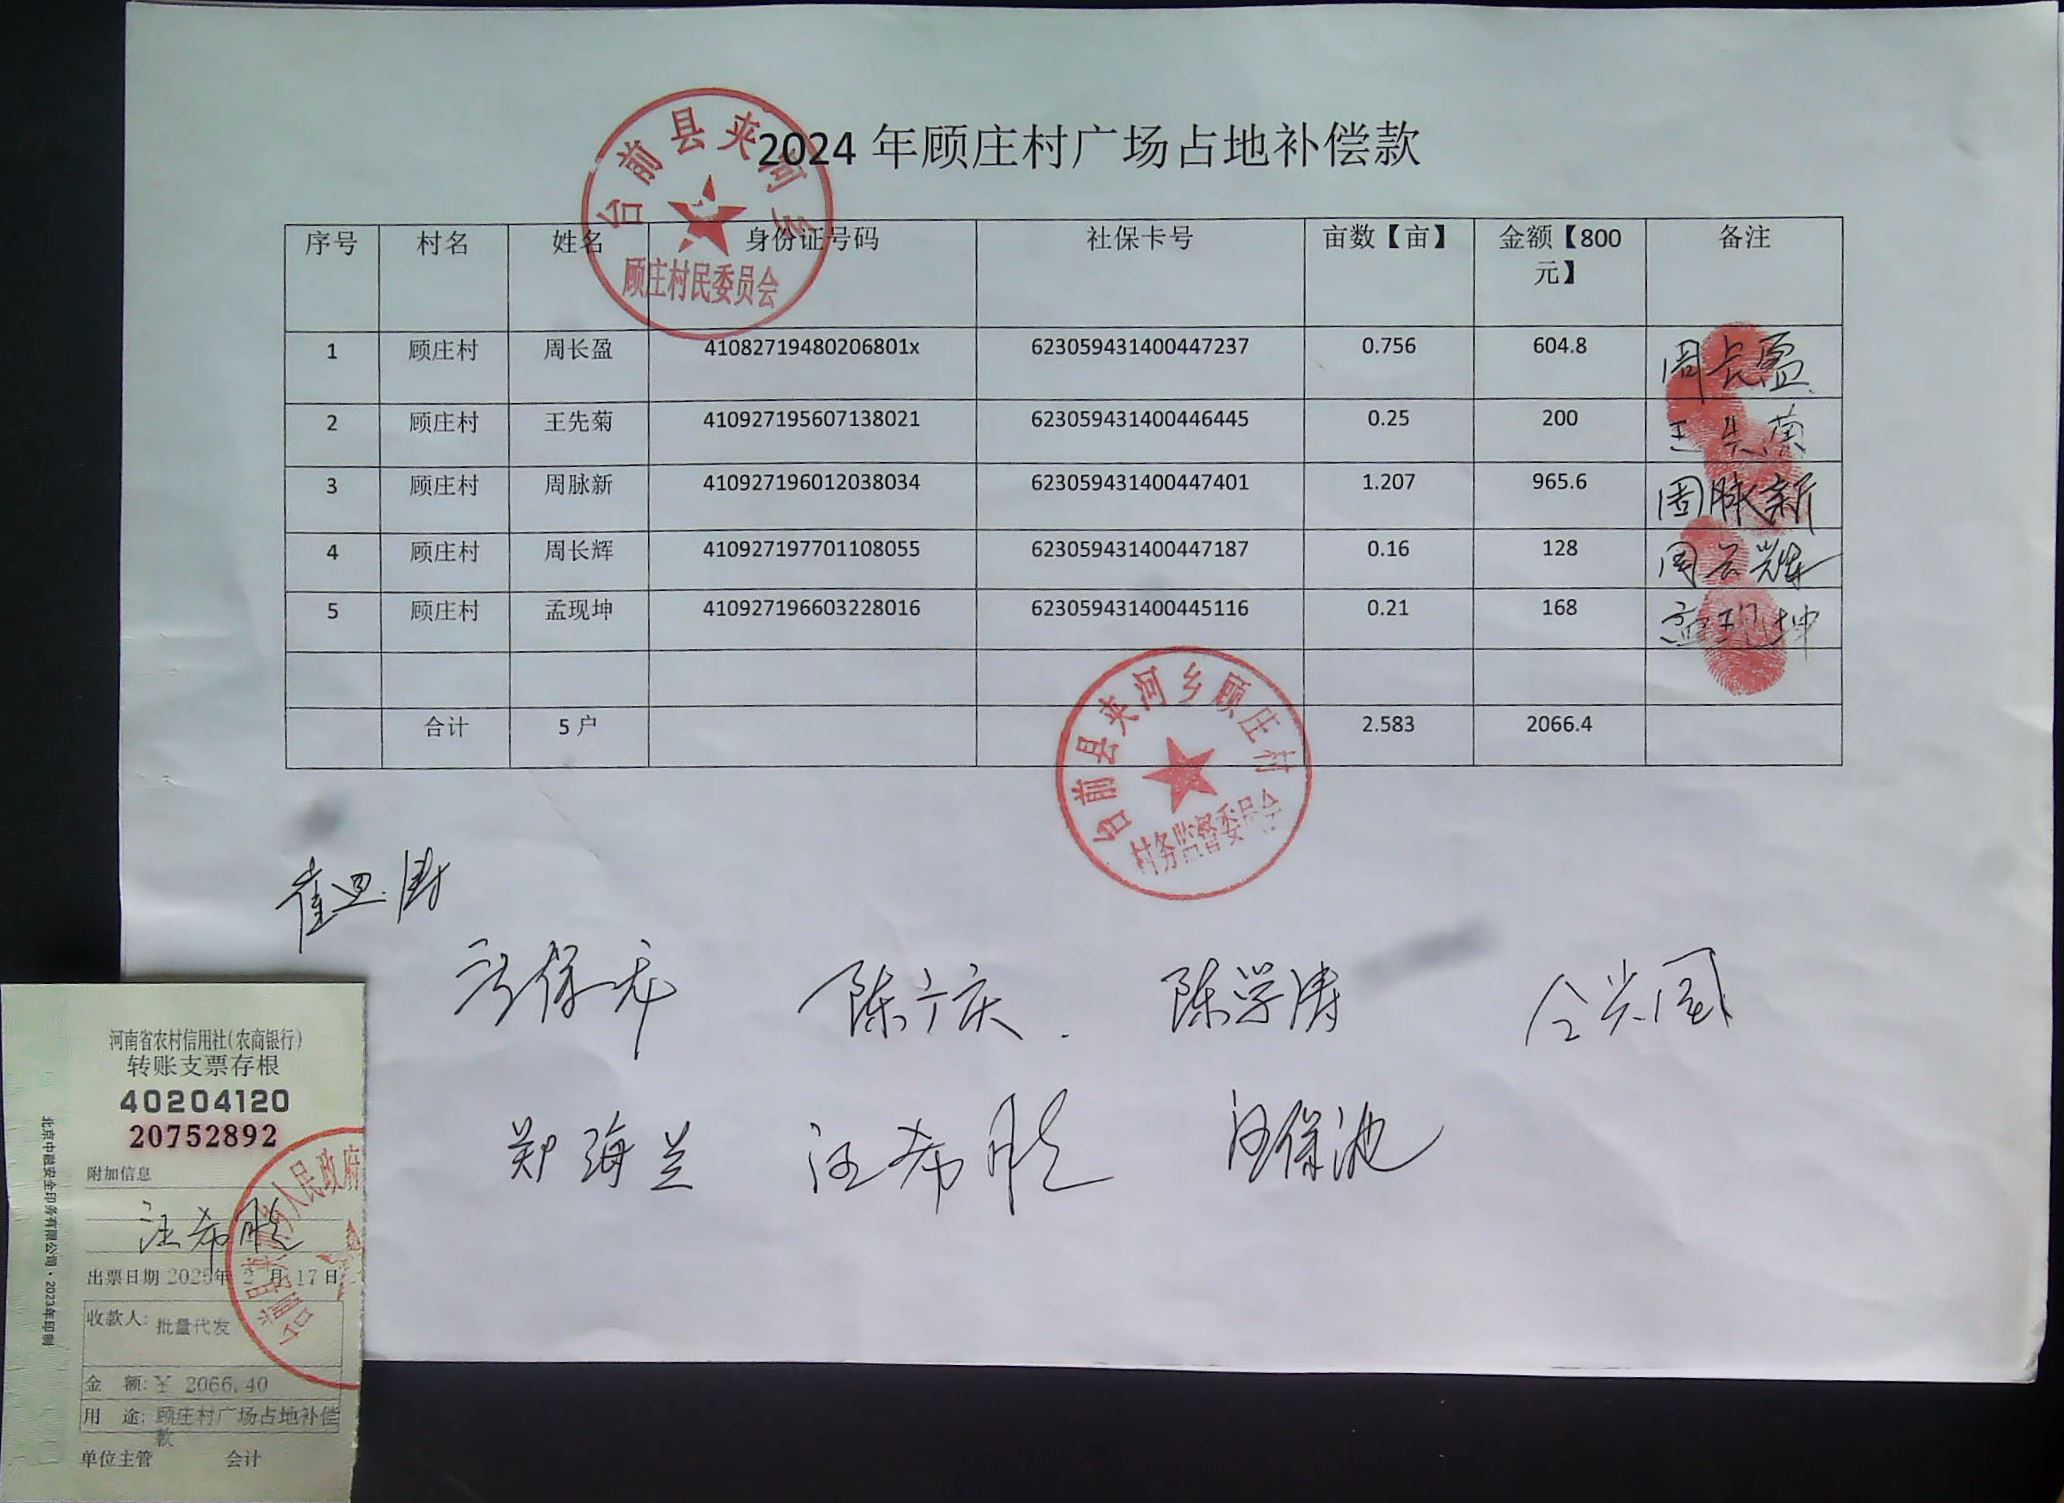 2024年顾庄村广场占地补偿款
台前县夹河乡
顾庄村民委员会
序号 村名 姓名 身份证号码 社保卡号 亩数【亩】 金额【800元】 备注
1 顾庄村 周长盈 41082719480206801x 623059431400447237 0.756 604.8 周长盈
2 顾庄村 王先菊 410927195607138021 623059431400446445 0.25 200 王先菊
3 顾庄村 周脉新 410927196012038034 623059431400447401 1.207 965.6 周脉新
4 顾庄村 周长辉 410927197701108055 623059431400447187 0.16 128 周长辉
5 顾庄村 孟现坤 410927196603228016 623059431400445116 0.21 168 孟现坤
合计 5户 2.583 2066.4
台前县夹河乡顾庄村
村务监督委员会
陈广庆 陈学涛
郑海兰 汪希胜 汪保池
河南省农村信用社(农商银行)
转账支票存根
40204120
20752892
附加信息
汪希胜
出票日期 2025年 2 月 17日
收款人: 批量代发
金 额: ¥ 2066.40
用 途: 顾庄村广场占地补偿
款
单位主管 会计
北京中融安全印务有限公司·2023年印制